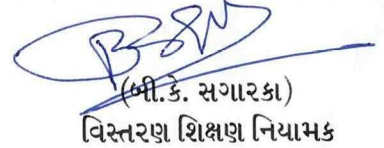 (બી.કે. સગારકા)
વિસ્તરણ શિક્ષણ નિયામક